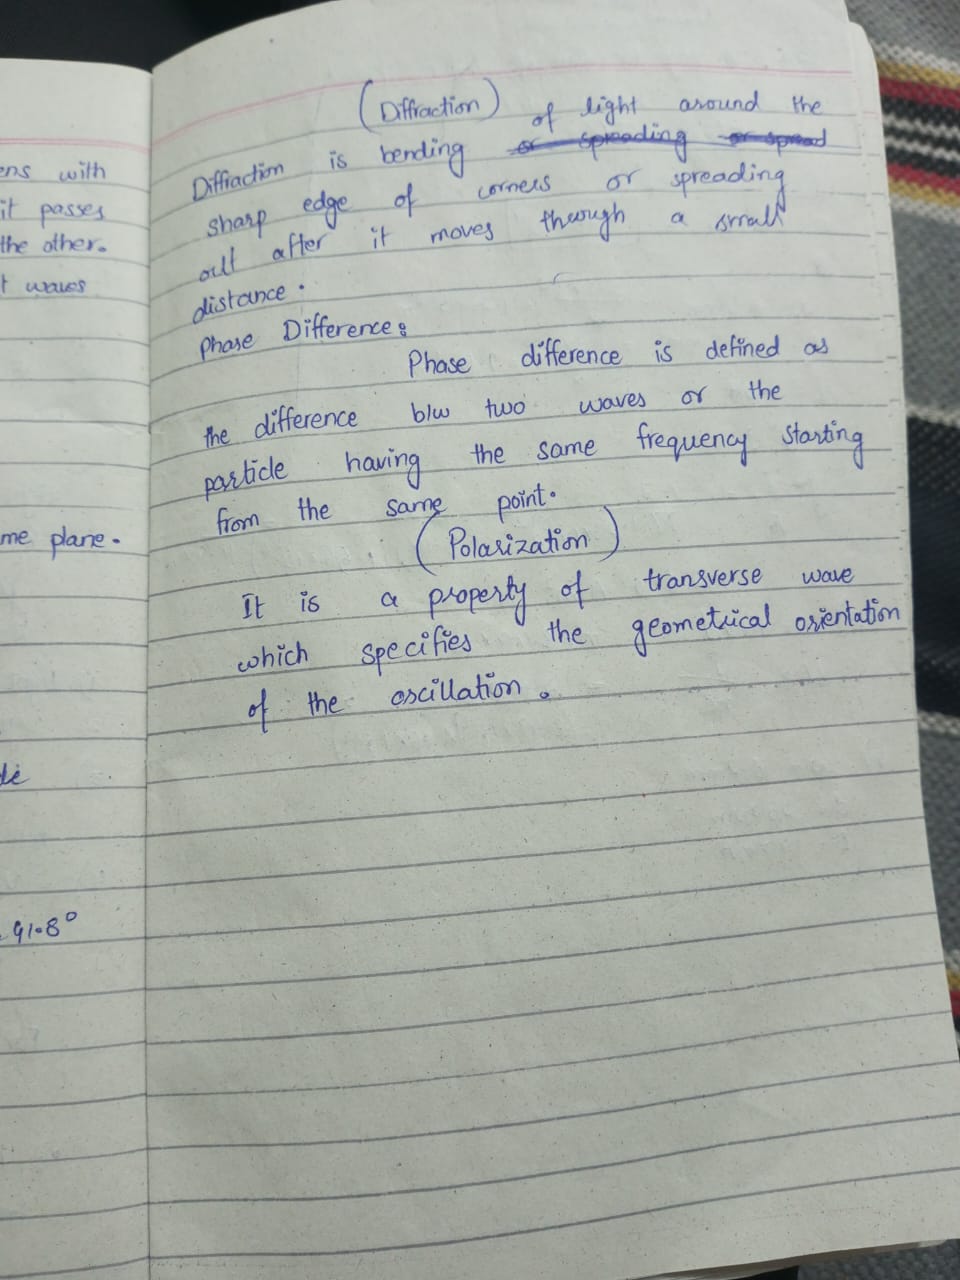 ens with
it passes
the other.
t waves
me plane.
91.8°
(Diffraction)
Diffraction is bending of light around the
sharp edge of corners or spreading
out after it moves through a small
distance.
Phase Difference:
Phase difference is defined as
the difference b/w two waves or the
particle having the same frequency starting
from the same point.
(Polarization)
It is a property of transverse wave
which specifies the geometrical orientation
of the oscillation.